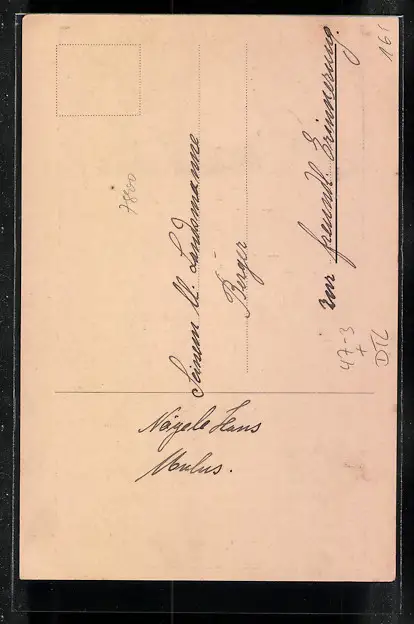 Seinem ll. Landsmanne
Berger
zur freundl. Erinnerung.
Nägele Hans
Mulus.
7800
47-3
+
DTL
161